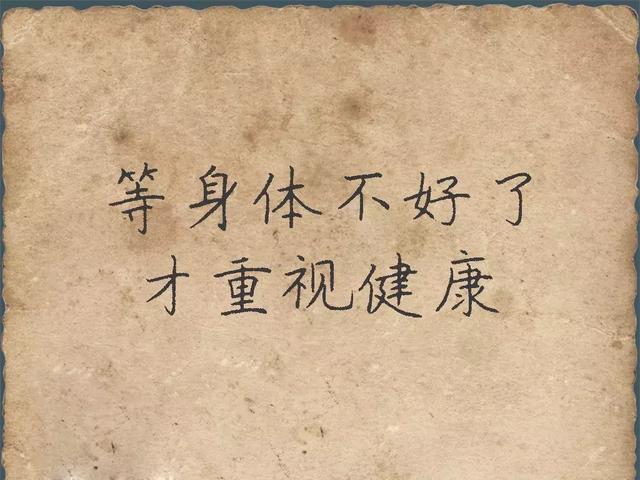 等身体不好了
才重视健康